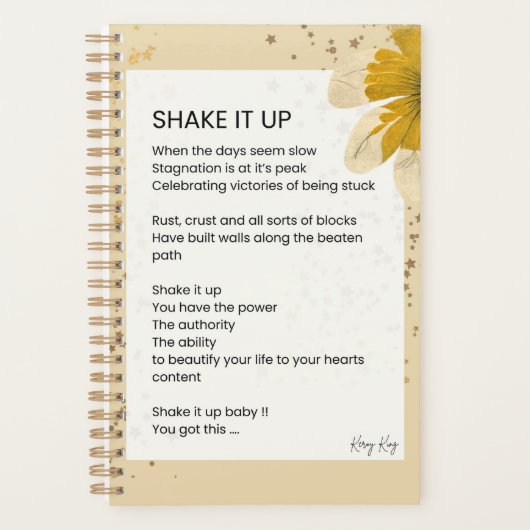 SHAKE IT UP
When the days seem slow
Stagnation is at it's peak
Celebrating victories of being stuck
Rust, crust and all sorts of blocks
Have built walls along the beaten
path
Shake it up
You have the power
The authority
The ability
to beautify your life to your hearts
content
Shake it up baby !!
You got this ....
Keray King